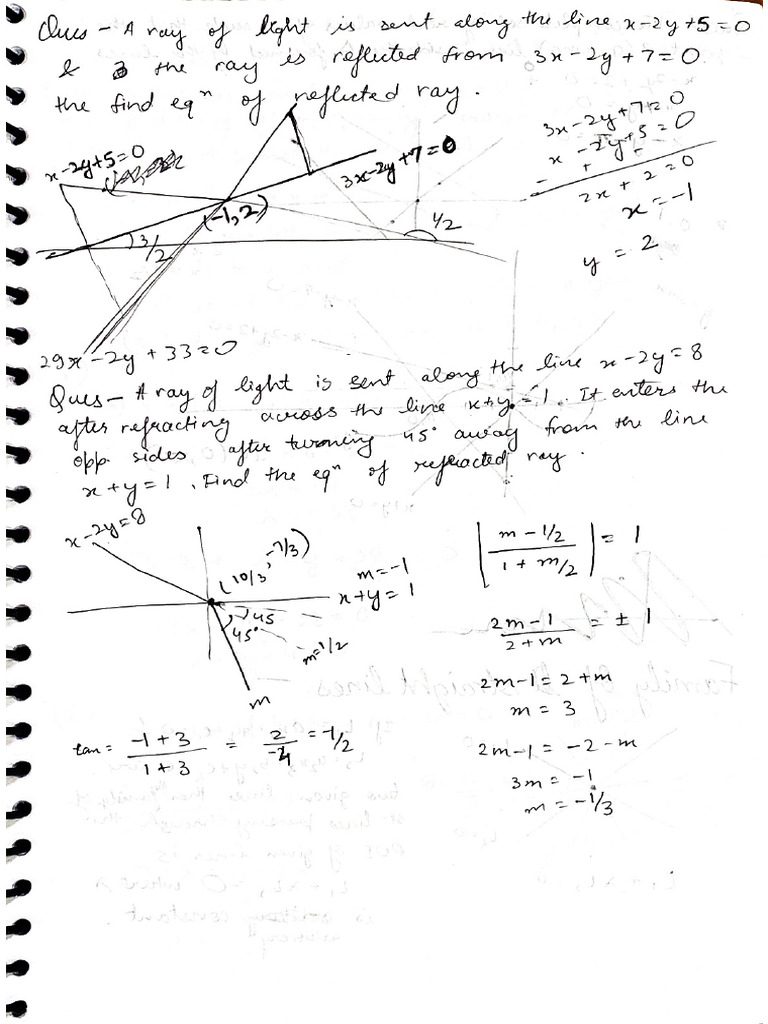 Ques - A ray of light is sent along the line x-2y+5=0
& the ray is reflected from 3x-2y+7=0
the find eqⁿ of reflected ray.
3x-2y+7=0
x-2y+5=0
- + -
2x+2=0
x=-1
y=2
x-2y+5=0
3x-2y+7=0
(-1,2)
3/2
1/2
29x-2y+33=0
Ques - A ray of light is sent along the line x-2y=8
after refracting across the line x+y=1. It enters the
opp. sides after turning 45° away from the line
x+y=1. Find the eqⁿ of refracted ray.
x-2y=8
(10/3, -7/3)
m=-1
x+y=1
45
45°
m=1/2
m
|m-1/2 / 1+m/2| = 1
2m-1 / 2+m = ±1
2m-1=2+m
m=3
2m-1=-2-m
3m=-1
m=-1/3
tan = -1+3 / 1+3 = 2/-4 = -1/2